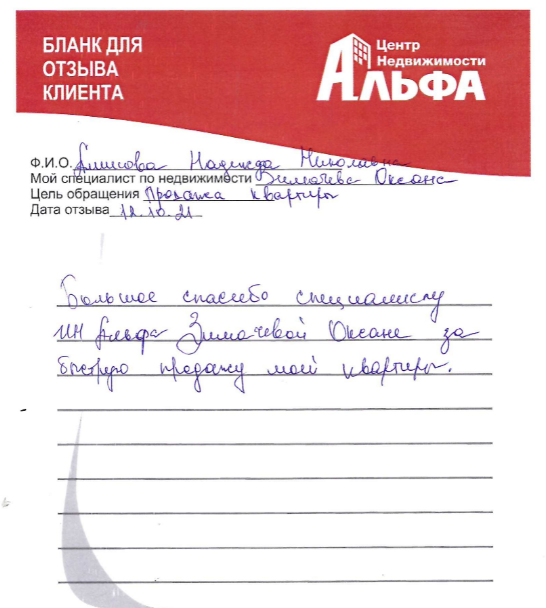 БЛАНК ДЛЯ
ОТЗЫВА
КЛИЕНТА
Центр
Недвижимости
АЛЬФА
Ф.И.О. Надежда Николавна
Мой специалист по недвижимости Зимачёва Оксана
Цель обращения Продажа квартиры
Дата отзыва 12.10.21
Большое спасибо специалисту
ИН Альфа Зимачевой Оксане за
быструю продажу моей квартиры.